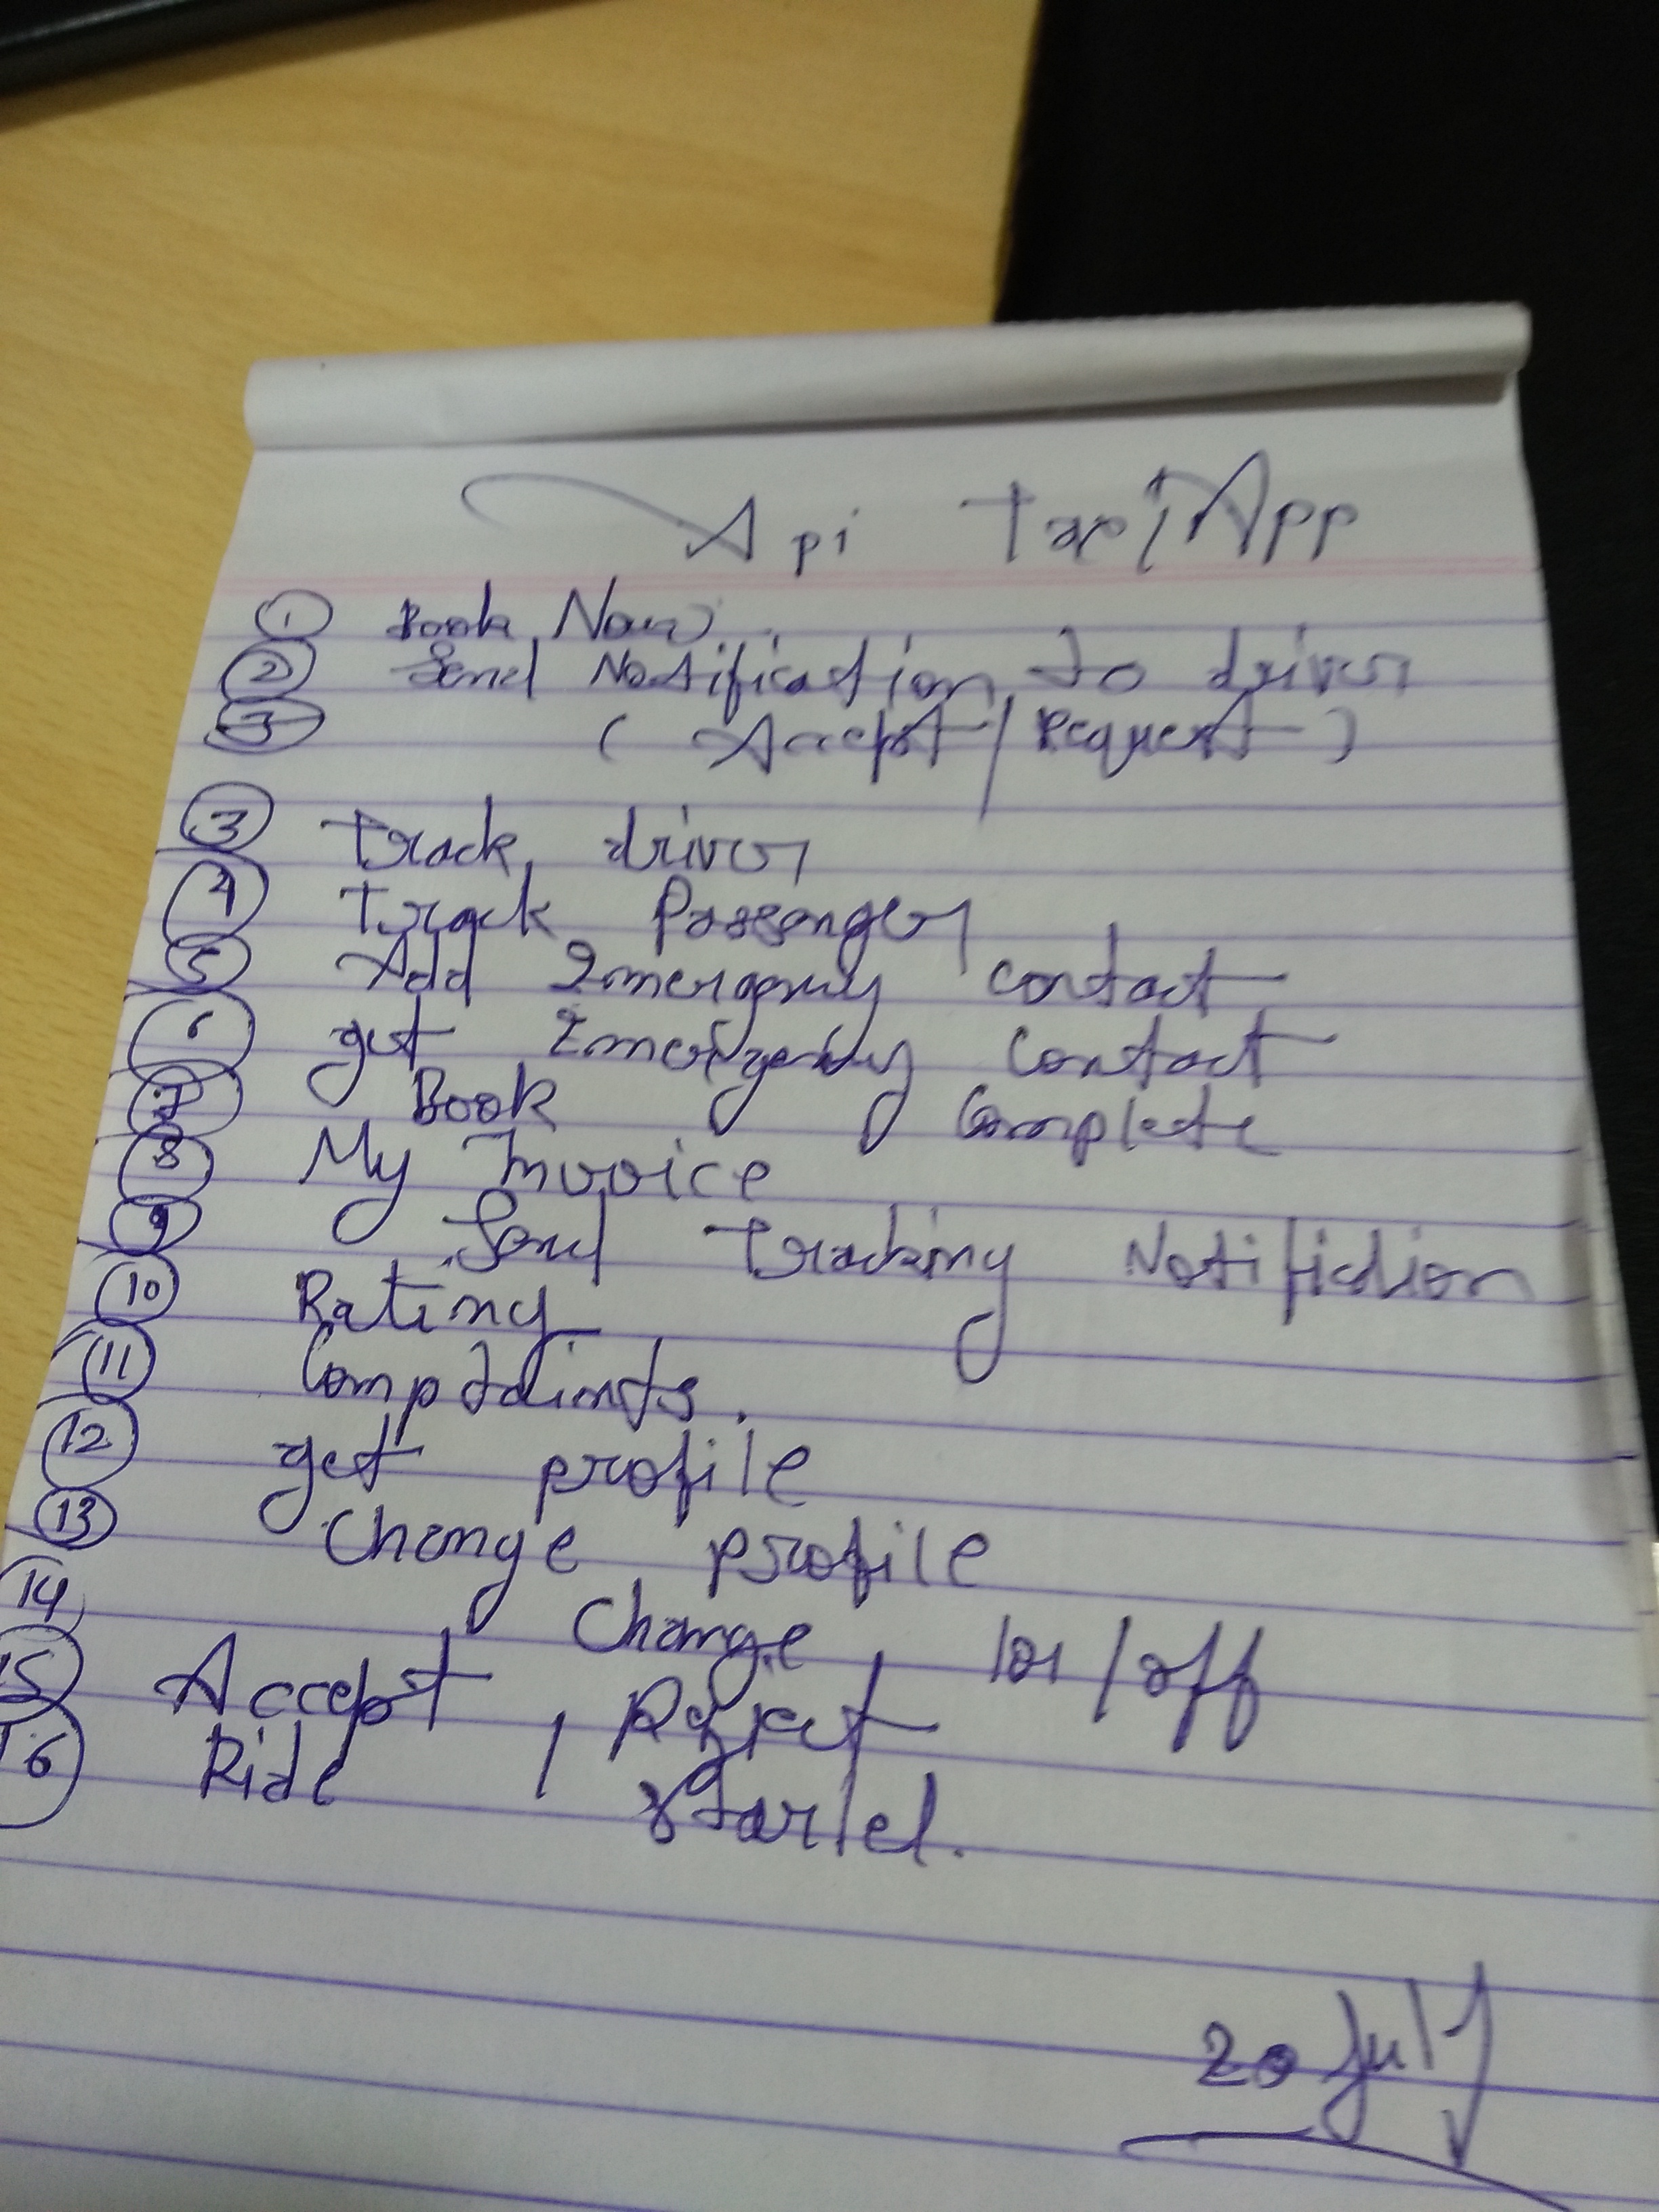 Api Taxi App
1 Book Now
2 Send Notification to driver
3 ( Accept / Request )
3 Track driver
4 Track Passenger
5 Add Emergency contact
6 get Emergency Contact
7 Book Complete
8 My Invoice
9 Send Tracking Notifiction
10 Rating
11 Complaints.
12 get profile
13 Change profile
14 Change / off
15 Accept , Reject
16 Ride , Started.
20 July